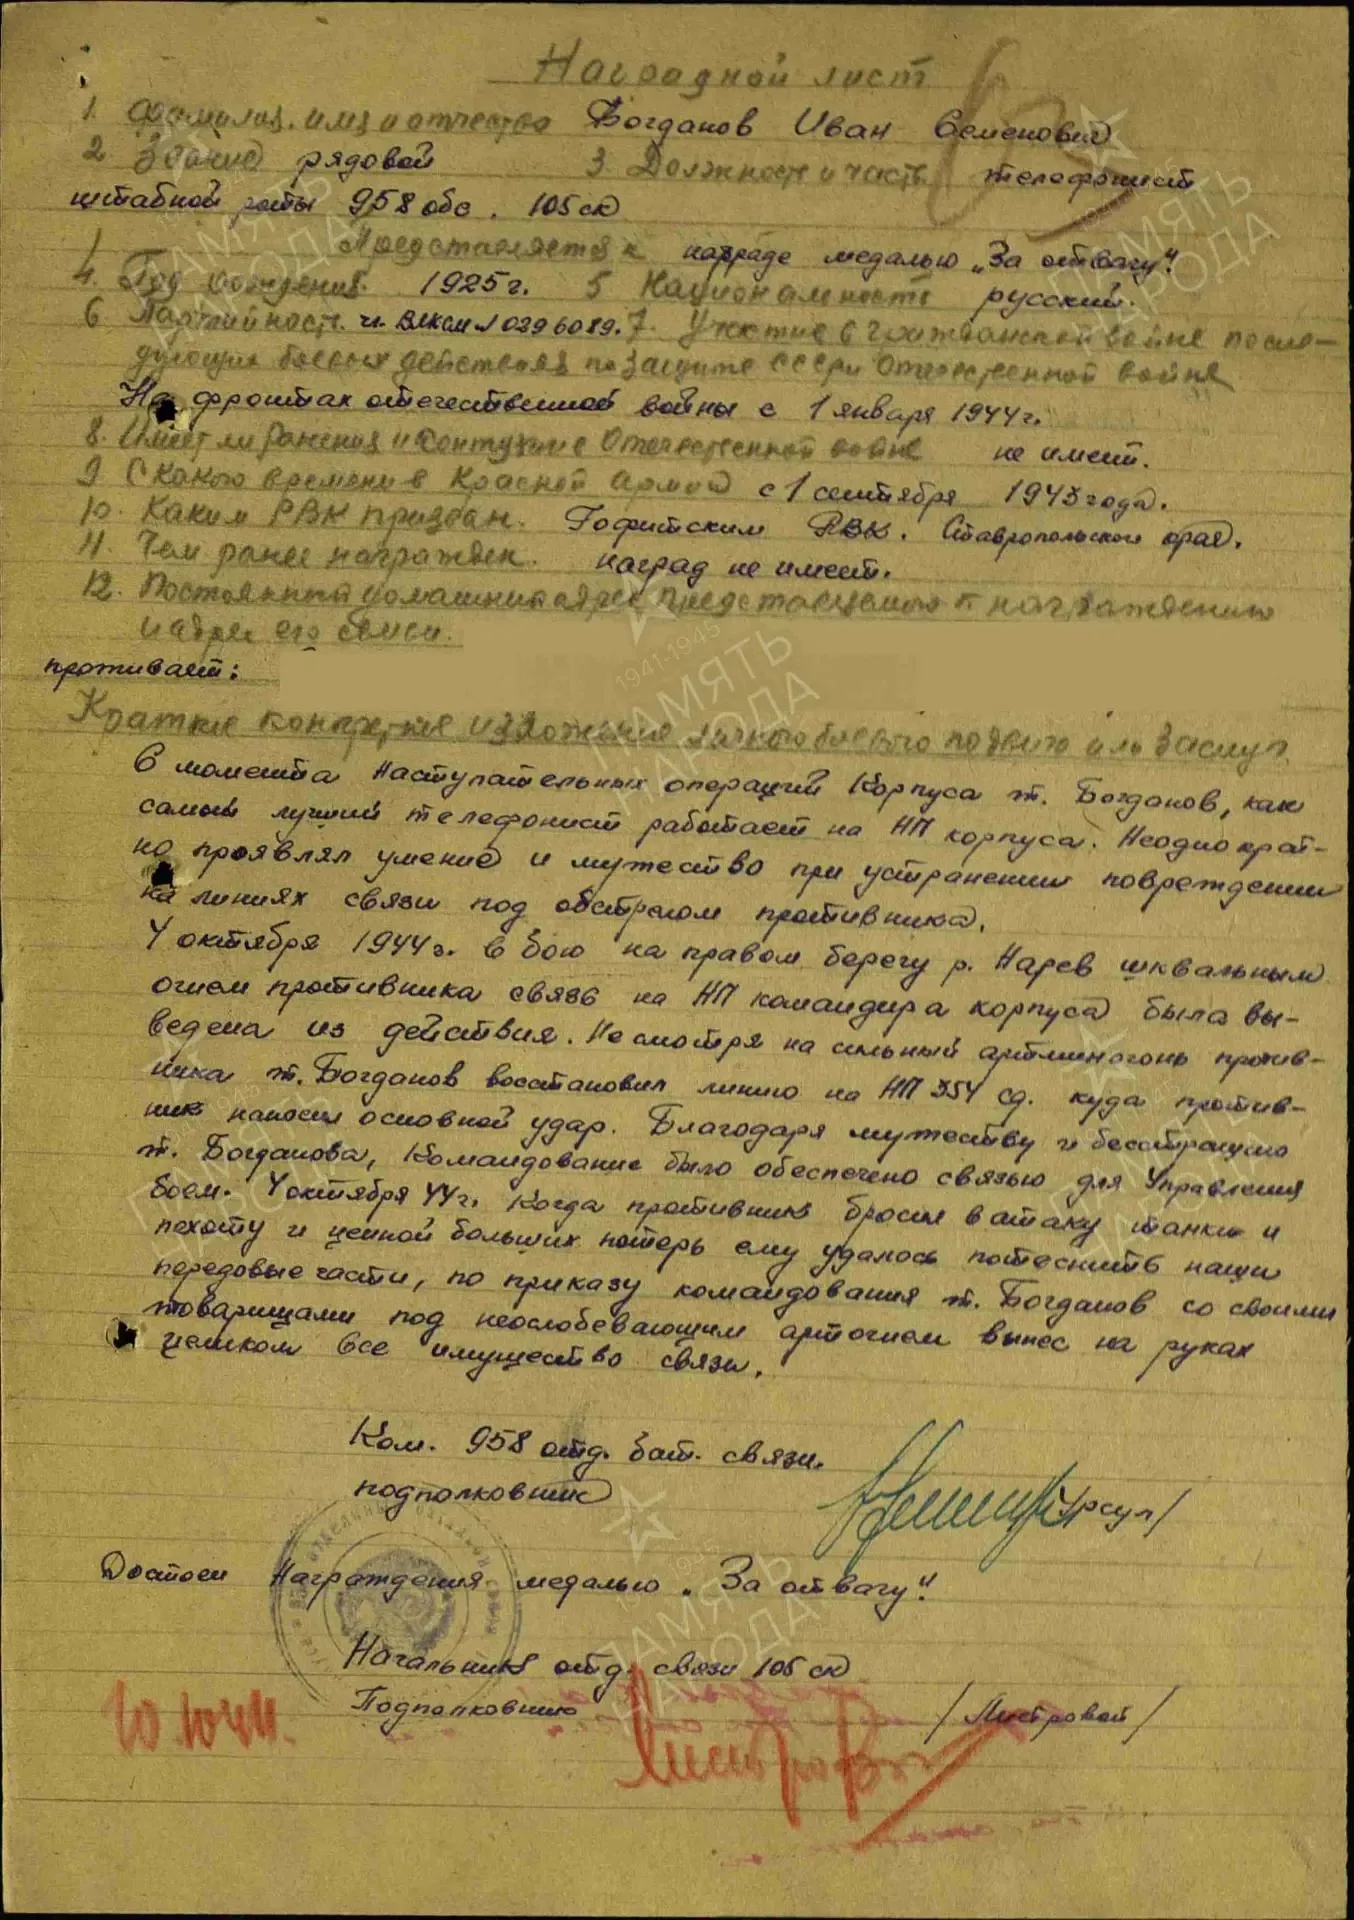 Наградной лист
1. Фамилия, имя и отчество Богданов Иван Семенович
2 Звание рядовой 3. Должность и часть телефонист
штабной роты 958 обс. 105 ск
Представляется к награде медалью „За отвагу".
4. Год рождения. 1925 г. 5 Национальность русский.
6 Партийность. чл. ВЛКСМ 7. Участие в гражданской войне после-
дующих боевых действиях по защите СССР и отечественной войне
На фронтах отечественной войны с 1 января 1944 г.
8. Имеет ли ранения и контузии в отечественной войне не имеет.
9 С какого времени в Красной армии с 1 сентября 1943 года.
10. Каким РВК призван. Гофитским РВК. Ставропольского края.
11. Чем ранее награжден. наград не имеет.
12. Постоянный домашний адрес представляемого к награждению
и адрес его семьи.
проживает:
Краткие конкретные изложение личного боевого подвига или заслуг.
С момента наступательных операций Корпуса т. Богданов, как
самый лучший телефонист работает на НП корпуса. Неоднократ-
но проявлял умение и мужество при устранении повреждении
на линиях связи под обстрелом противника.
4 октября 1944 г. в бою на правом берегу р. Нарев шквальным
огнем противника связь на НП командира корпуса была вы-
ведена из действия. Не смотря на сильный артминогонь против-
ника т. Богданов восстановил линию на НП 354 сд. куда против-
ник наносил основной удар. Благодаря мужеству и бесстрашию
т. Богданова, Командование было обеспечено связью для Управления
боем. 4 октября 44 г. Когда противник бросил в атаку танки и
пехоту и ценной больших потерь ему удалось потеснить наши
передовые части, по приказу командования т. Богданов со своими
товарищами под неослобевающим артогнем вынес на руках
целиком все имущество связи.
Ком. 958 отд. бат. связи.
подполковник /Урсул/
Достоен Награждения медалью „За отвагу".
Начальник отд. связи 105 ск
Подполковник /Листровой/
10.10.44.